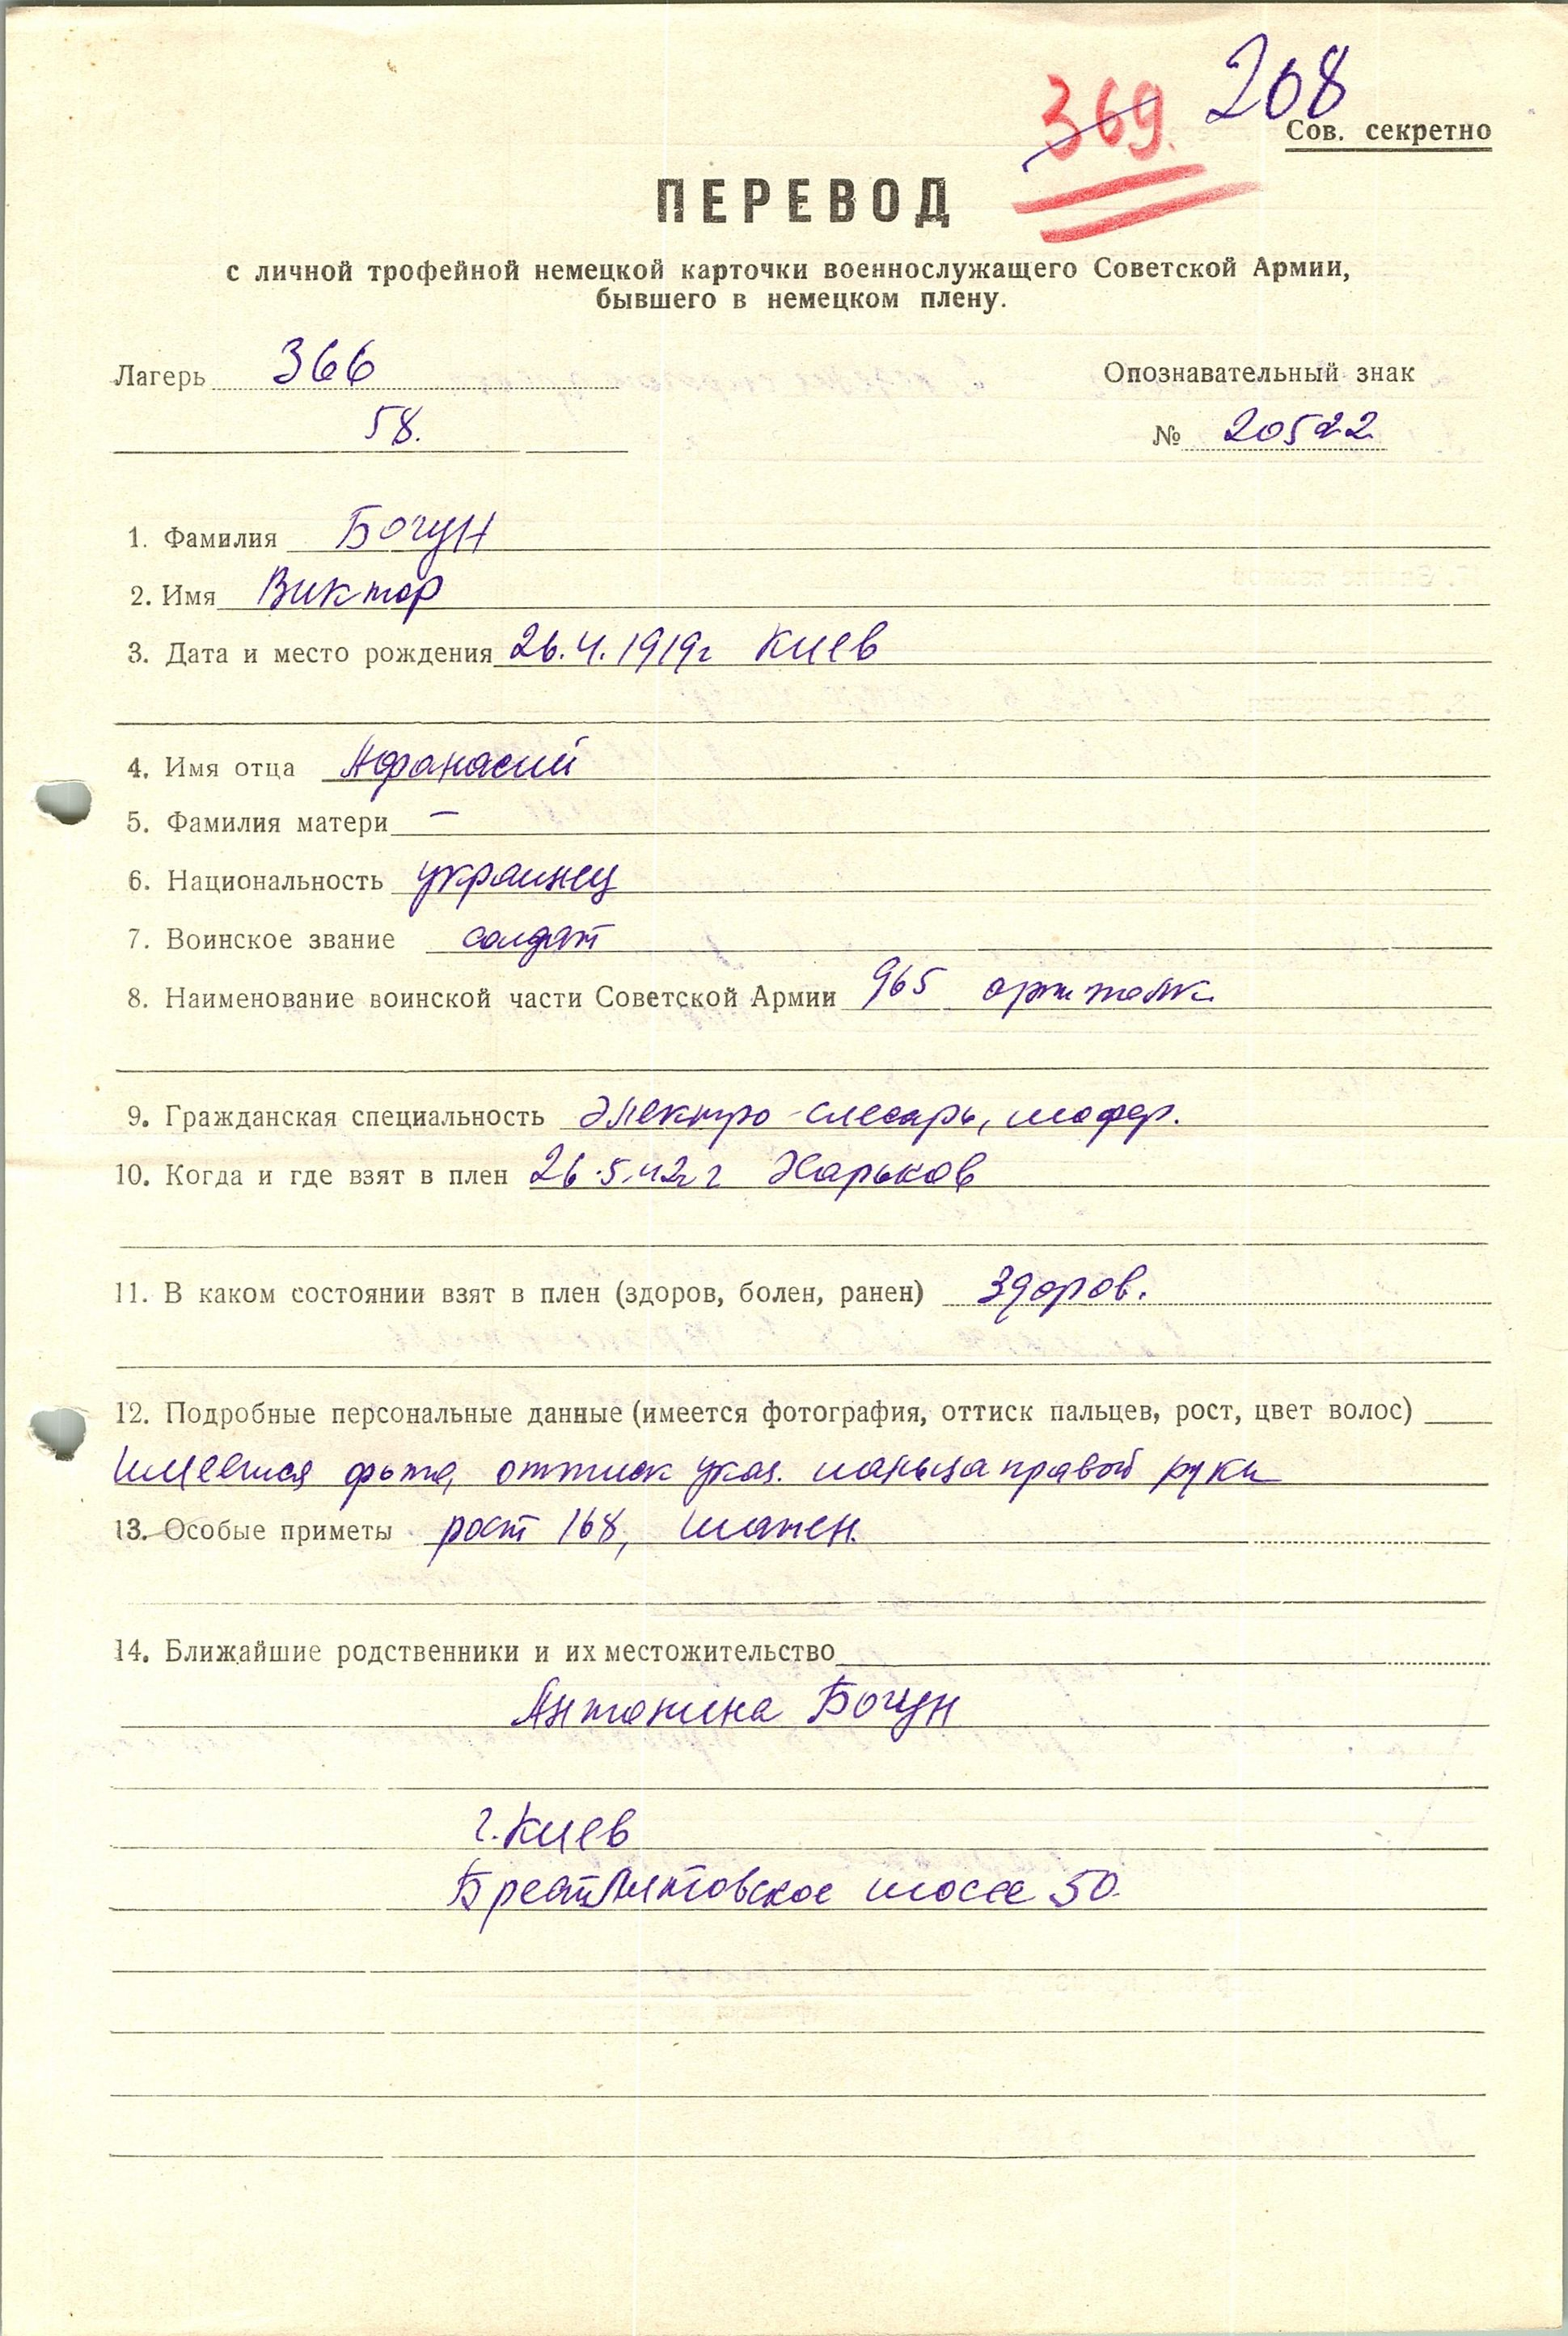 369. 208
Сов. секретно
ПЕРЕВОД
с личной трофейной немецкой карточки военнослужащего Советской Армии,
бывшего в немецком плену.
Лагерь 366 Опознавательный знак
58. № 20522
1. Фамилия Богун
2. Имя Виктор
3. Дата и место рождения 26.4.1919г Киев
4. Имя отца Афанасий
5. Фамилия матери —
6. Национальность украинец
7. Воинское звание солдат
8. Наименование воинской части Советской Армии 965 арт. полк
9. Гражданская специальность электро-слесарь, шофер.
10. Когда и где взят в плен 26.5.42г Харьков
11. В каком состоянии взят в плен (здоров, болен, ранен) здоров.
12. Подробные персональные данные (имеется фотография, оттиск пальцев, рост, цвет волос)
имеется фото, оттиск указ. пальца правой руки
13. Особые приметы рост 168, шатен.
14. Ближайшие родственники и их местожительство
Антонина Богун
г. Киев
БрестЛитовское шоссе 50